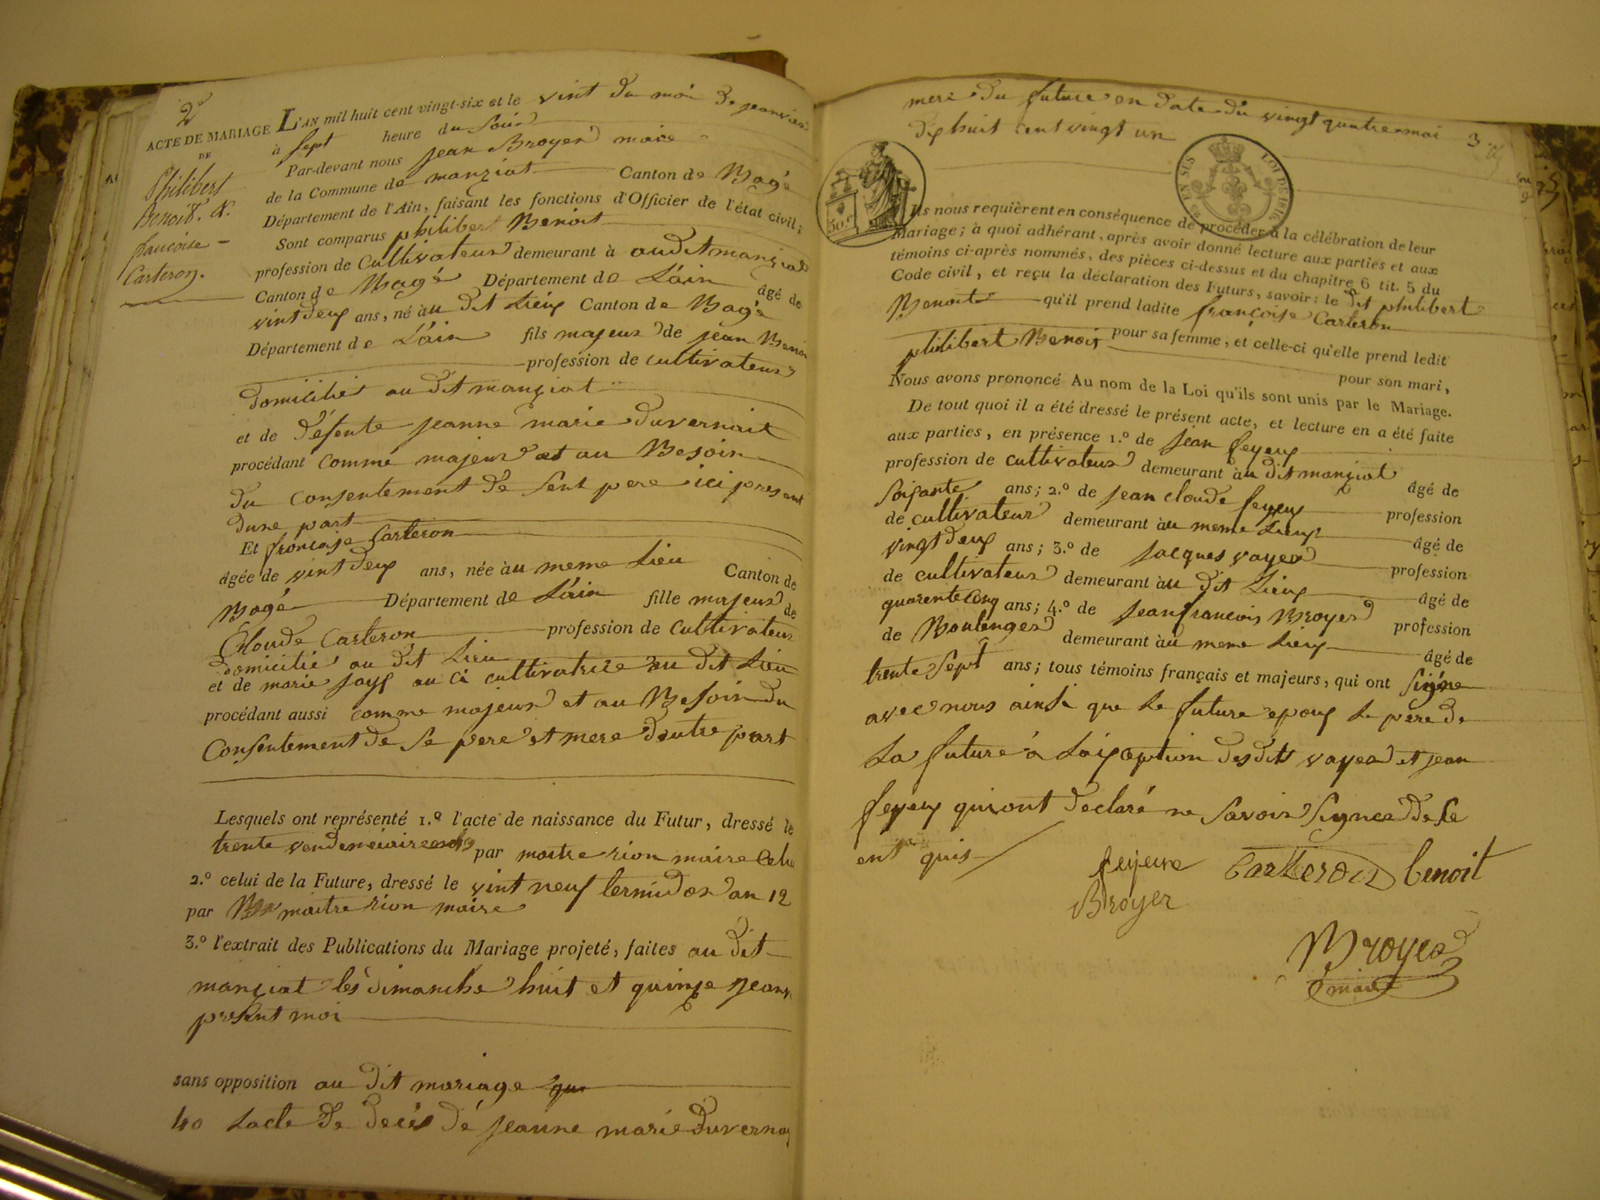 2e
ACTE DE MARIAGE
DE
Philibert
Benoit. &.
francoise
Carteron.
L'AN mil huit cent vingt-six et le vint du moi de janvier
à sept heure du soir
Par-devant nous jean Broyer maire
de la Commune de manziat Canton de Bagé
Département de l'Ain, faisant les fonctions d'Officier de l'état civil;
Sont comparus philibert Benoit
profession de Cultivateur demeurant à audit manziat
Canton de Bagé Département de L'ain âgé de
vint deux ans, né au dit Lieux Canton de Bagé
Département de L'ain fils majeur de jean Benoi
profession de cultivateur
domicilié au dit manziat
et de défente jeanne marie duvernait
procédant comme majeur et au Besoin
du consentement de sent pere ici present
dune part
Et françoise Carteron
âgée de vint deux ans, née au meme Lieu Canton de
Bagé Département de L'ain fille majeur de
Cloude Carteron profession de Cultivateur
domicilié au dit Lieu
et de marie jayt au ci cultivatrice au dit Lieu
procédant aussi comme majeur et au Besoin du
Consentement de se pere et mere dautre part
Lesquels ont représenté 1.º l'acte de naissance du Futur, dressé le
trente vendemiaire par maitre rion maire
2.º celui de la Future, dressé le vint neuf termidor an 12
par maitre rion maire
3.º l'extrait des Publications du Mariage projeté, faites au dit
manziat les dimanche huit et quinze jeanv
present moi
sans opposition au dit mariage
40 Lacte de deces dé jeanne marie duvernay
mere du future en date du vingt quatre mai
dixhuit cent vingt un
3
30 c.
LOI DE 1816
Ils nous requièrent en conséquence de procéder à la célébration de leur
Mariage; à quoi adhérant, après avoir donné lecture aux parties et aux
témoins ci-après nommés, des pièces ci-dessus et du chapitre 6 tit. 5 du
Code civil, et reçu la déclaration des Futurs, savoir: le dit philibert
Benoit qu'il prend ladite françoise Carteron
pour sa femme, et celle-ci qu'elle prend ledit
philibert Benoit pour son mari,
Nous avons prononcé Au nom de la Loi qu'ils sont unis par le Mariage.
De tout quoi il a été dressé le présent acte, et lecture en a été faite
aux parties, en présence 1.º de jean feyeux
profession de cultivateur demeurant au dit manziat âgé de
soisante ans; 2.º de jean cloude feyeux profession
de cultivateur demeurant au meme Lieux âgé de
vingt deux ans; 3.º de jacques vayer profession
de cultivateur demeurant au dit Lieux âgé de
quarente cinq ans; 4.º de jean francois Broyer profession
de Boulenger demeurant au meme Lieux âgé de
trente sept ans; tous témoins français et majeurs, qui ont signe
avec nous ainsi que le future epoux le pere de
La future à Laixception desdits vayer et jean
feyeux qui ont declaré ne savoir signer de ce
enquis
feyeux Carteron benoit
Broyer
Broyer
maire